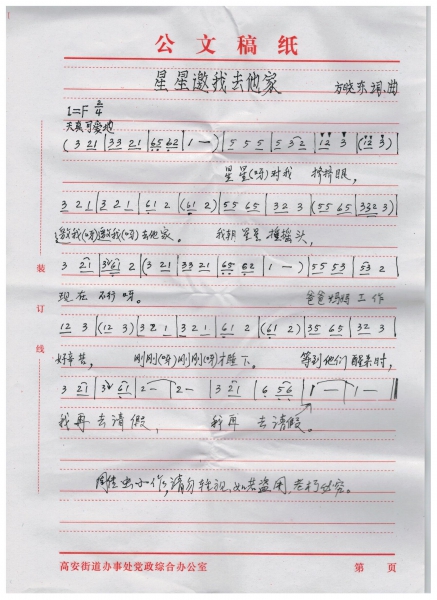 公文稿纸
星星邀我去他家
方晓东 词、曲
1=F 2/4
天真可爱地
(3 21 | 33 21 | 65 62 | 1 — ) | 5 5 5 | 5 32 | 12 3 | (12 3) |
星星(呀)对我 挤挤眼,
3 2 1 | 3 2 1 | 61 2 | (61 2) | 55 65 | 32 3 | (55 65 | 332 3) |
邀我(呀)邀我(呀)去他家。 我朝星星 摇摇头,
3 21 | 3 61 2 | (3 21 | 33 21 | 65 62 | 1 — ) | 55 53 | 53 2 |
现在 不行呀。 爸爸妈妈 工作
12 3 | (12 3) | 3 2 1 | 3 2 1 | 61 2 | (61 2) | 35 65 | 32 3 |
好辛苦, 刚刚(呀)刚刚(呀)才睡下。 等到他们 醒来时,
3 21 | 3 61 | 2 — | 2 — | 3 21 | 6 56 | 1 — | 1 — ‖
我再 去请假, 我再 去请假。
小作,请勿轻视,如若盗用,老朽必究。
装
订
线
高安街道办事处党政综合办公室
第 页